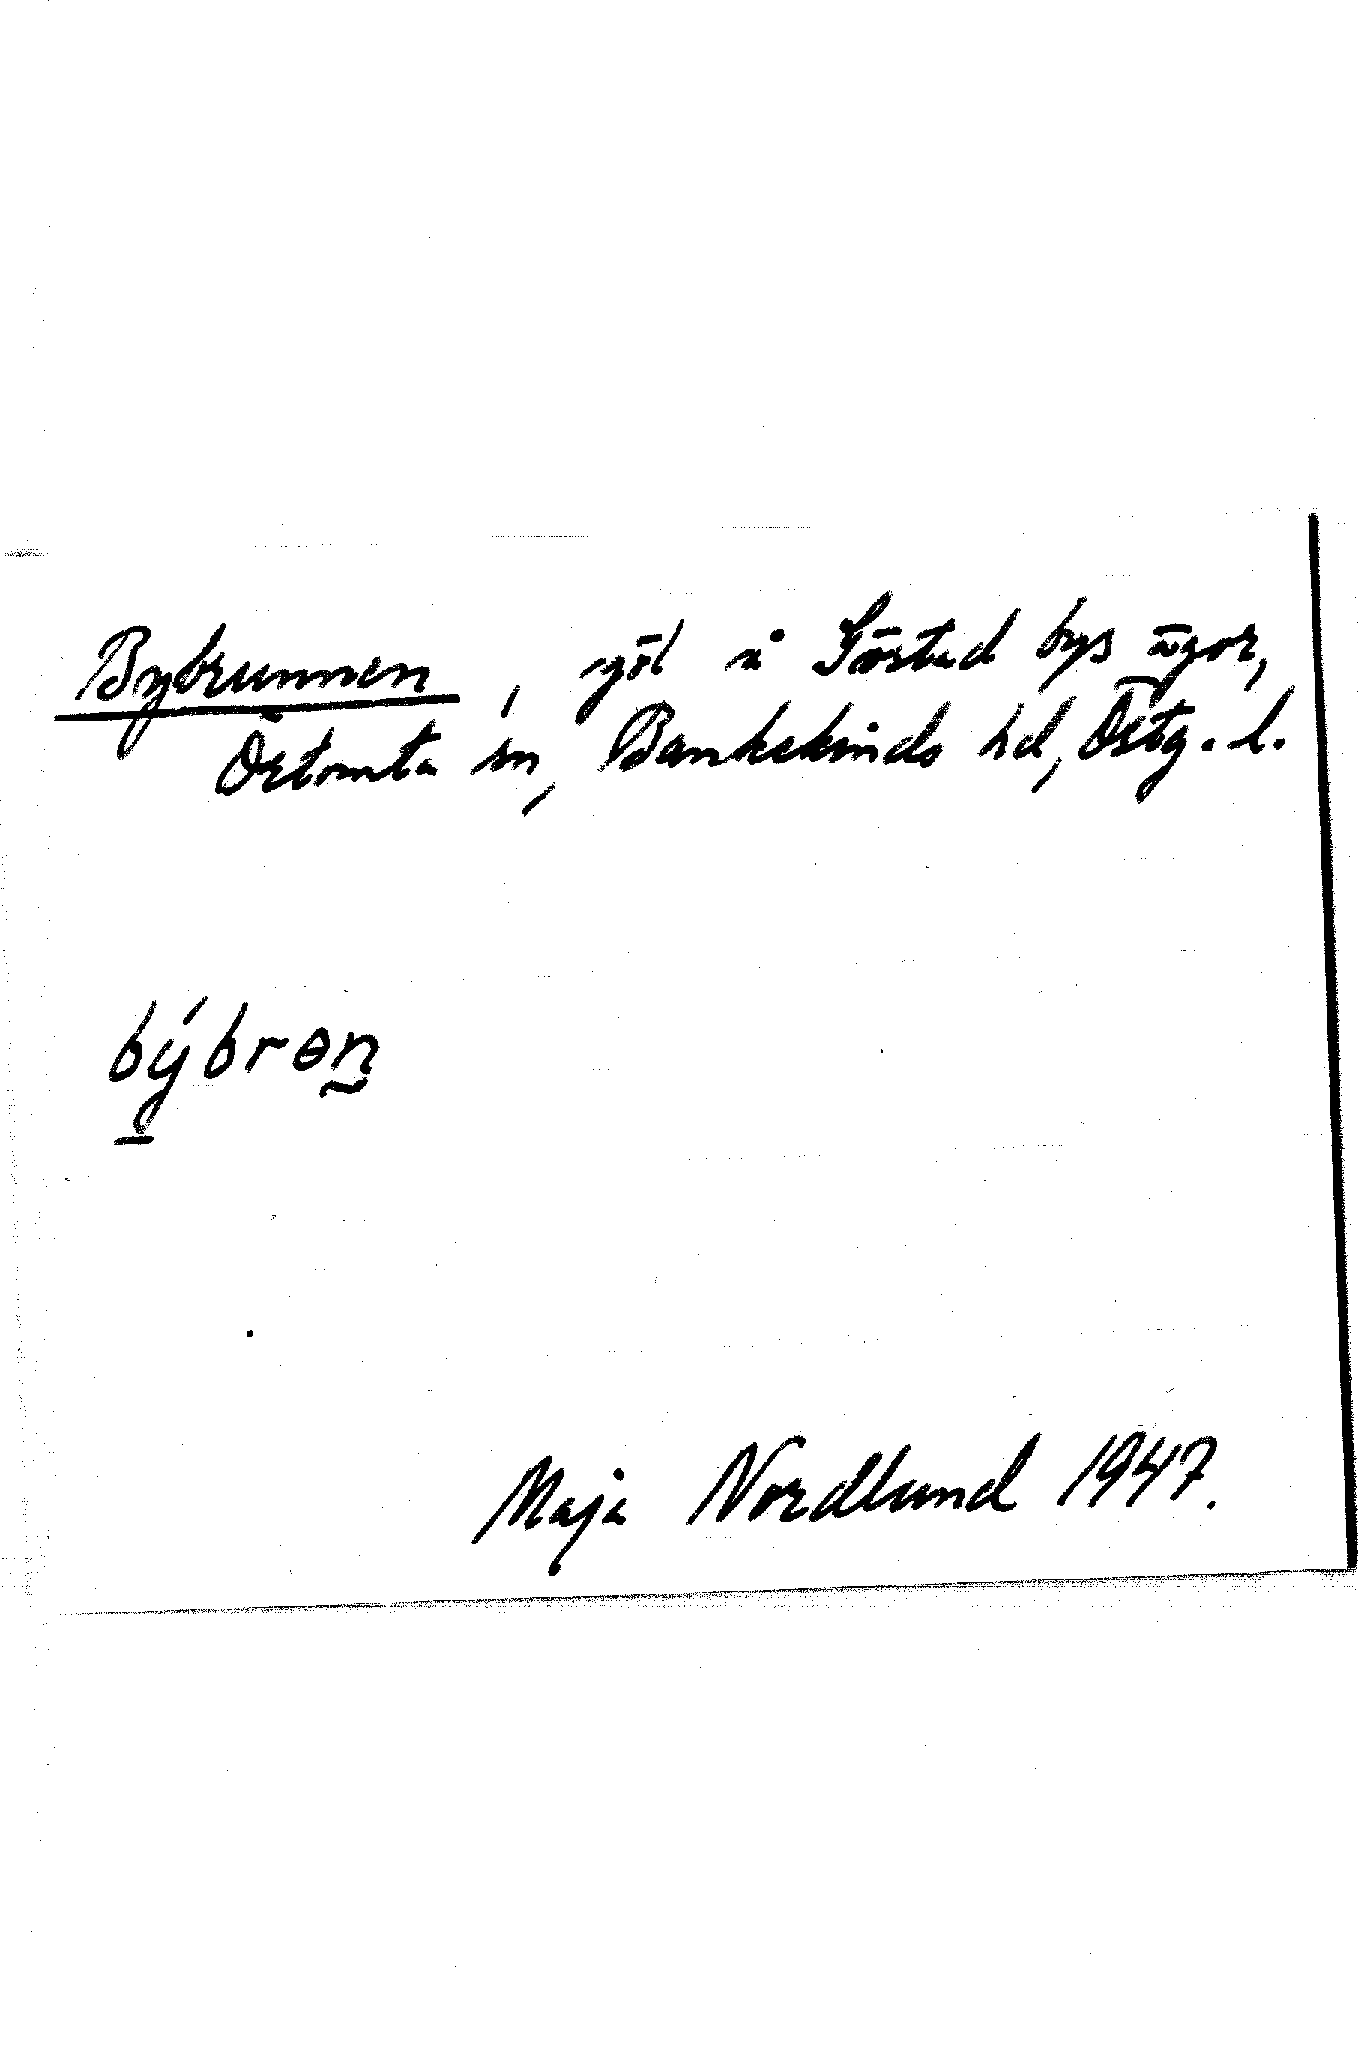 Bybrunnen, göl å Sörstad bys ägor,
Örtomta sn, Bankekinds hd, Östg. l.
býbrɵn̰
Maja Nordlund 1947.